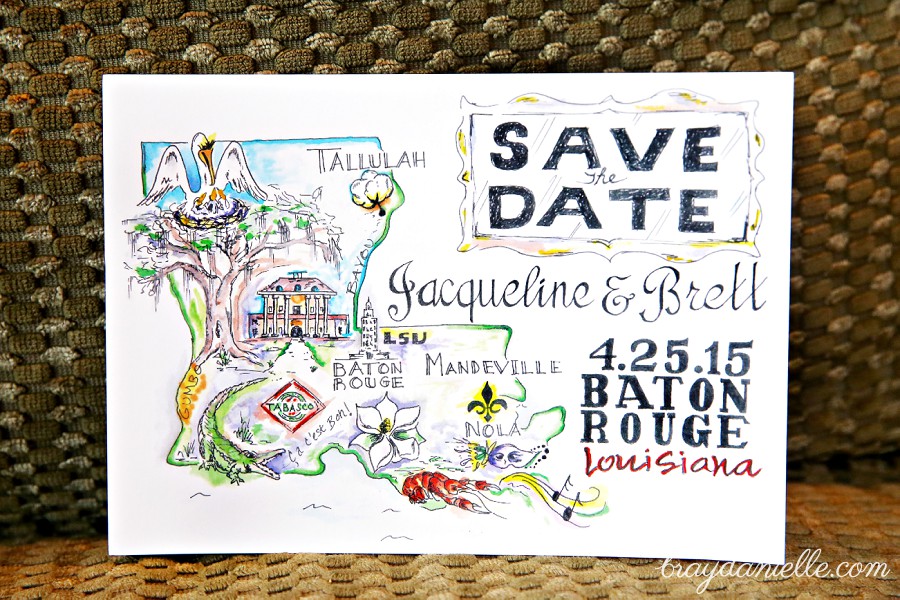 SAVE
The
DATE
Jacqueline & Brett
4.25.15
BATON
ROUGE
Louisiana
TALLULAH
BAYOU
LSU
BATON
ROUGE
MANDEVILLE
GUMBO
TABASCO
Ça c'est Bon!
NOLA
braydanielle.com